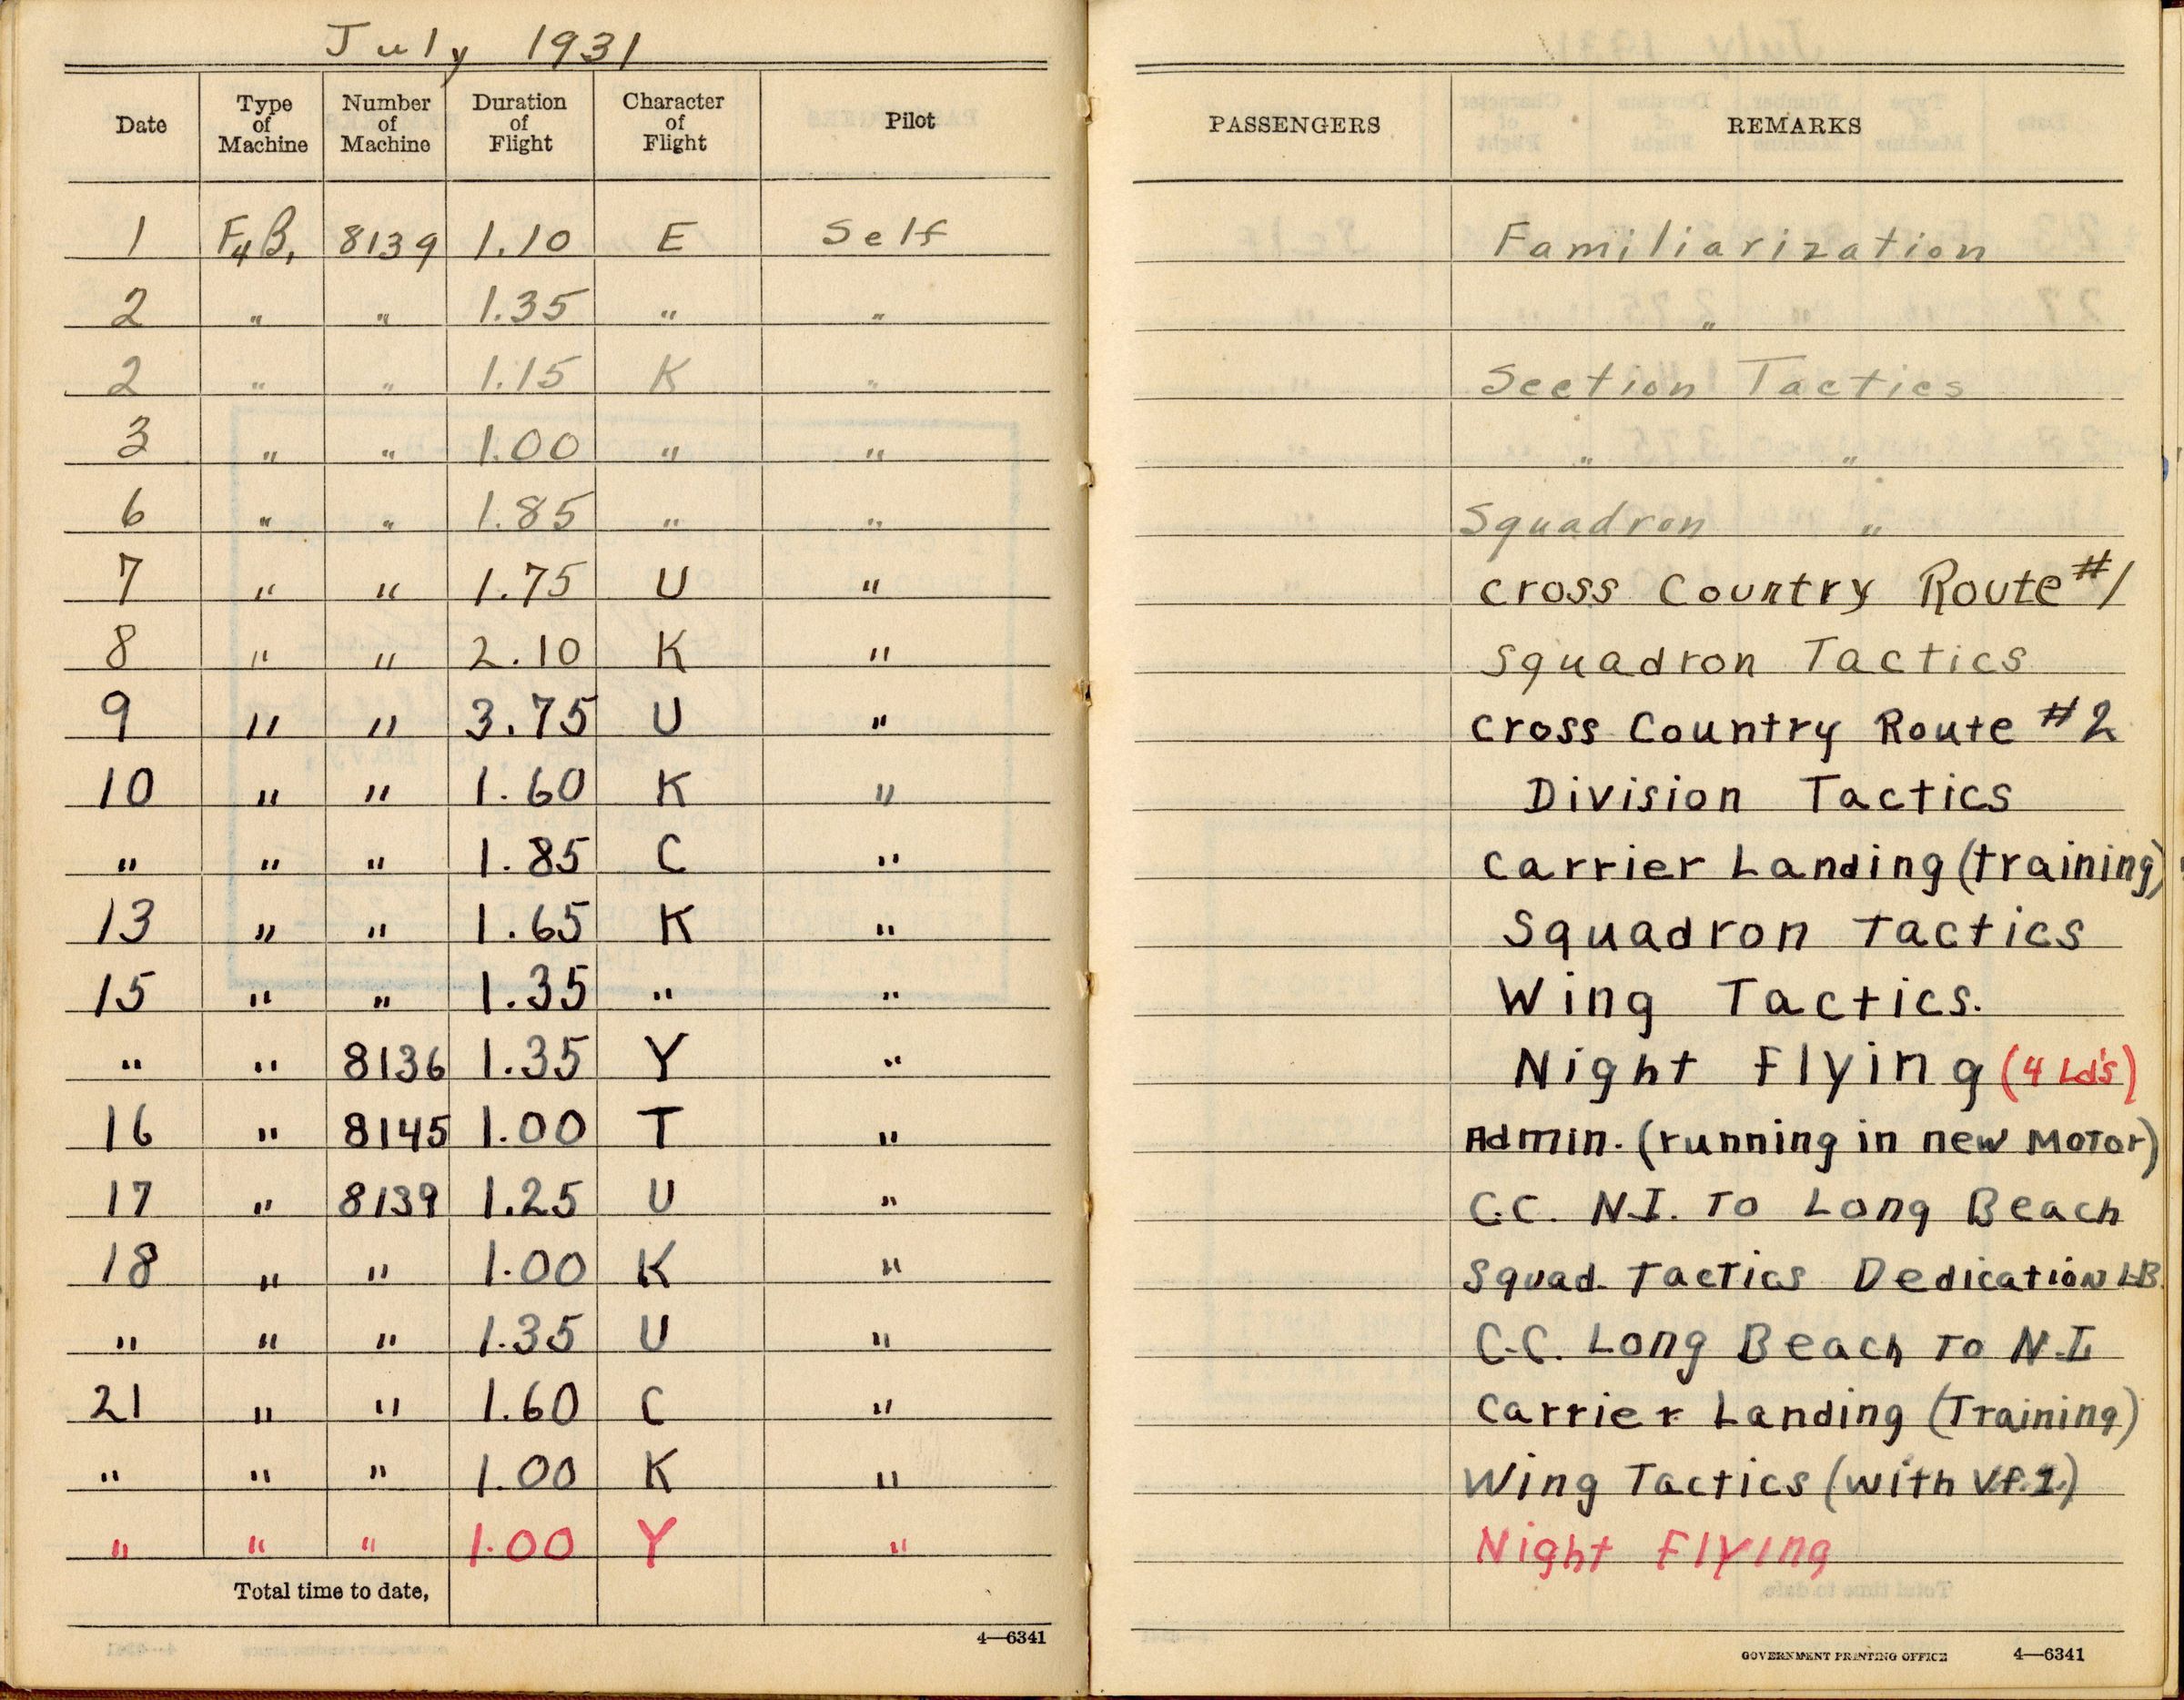 July 1931
Date Type of Machine Number of Machine Duration of Flight Character of Flight Pilot PASSENGERS REMARKS
1 F4B1 8139 1.10 E Self Familiarization
2 " " 1.35 " " "
2 " " 1.15 K " Section Tactics
3 " " 1.00 " " " "
6 " " 1.85 " " Squadron "
7 " " 1.75 U " Cross Country Route #1
8 " " 2.10 K " Squadron Tactics
9 " " 3.75 U " Cross Country Route #2
10 " " 1.60 K " Division Tactics
" " " 1.85 C " Carrier Landing (training)
13 " " 1.65 K " Squadron Tactics
15 " " 1.35 " " Wing Tactics.
" " 8136 1.35 Y " Night Flying (4 Ld's)
16 " 8145 1.00 T " Admin. (running in new Motor)
17 " 8139 1.25 U " C.C. N.I. To Long Beach
18 " " 1.00 K " Squad. Tactics Dedication L.B.
" " " 1.35 U " C.C. Long Beach To N.I.
21 " " 1.60 C " Carrier Landing (Training)
" " " 1.00 K " Wing Tactics (with V.F.1)
" " " 1.00 Y " Night Flying
Total time to date,
4—6341
GOVERNMENT PRINTING OFFICE 4—6341